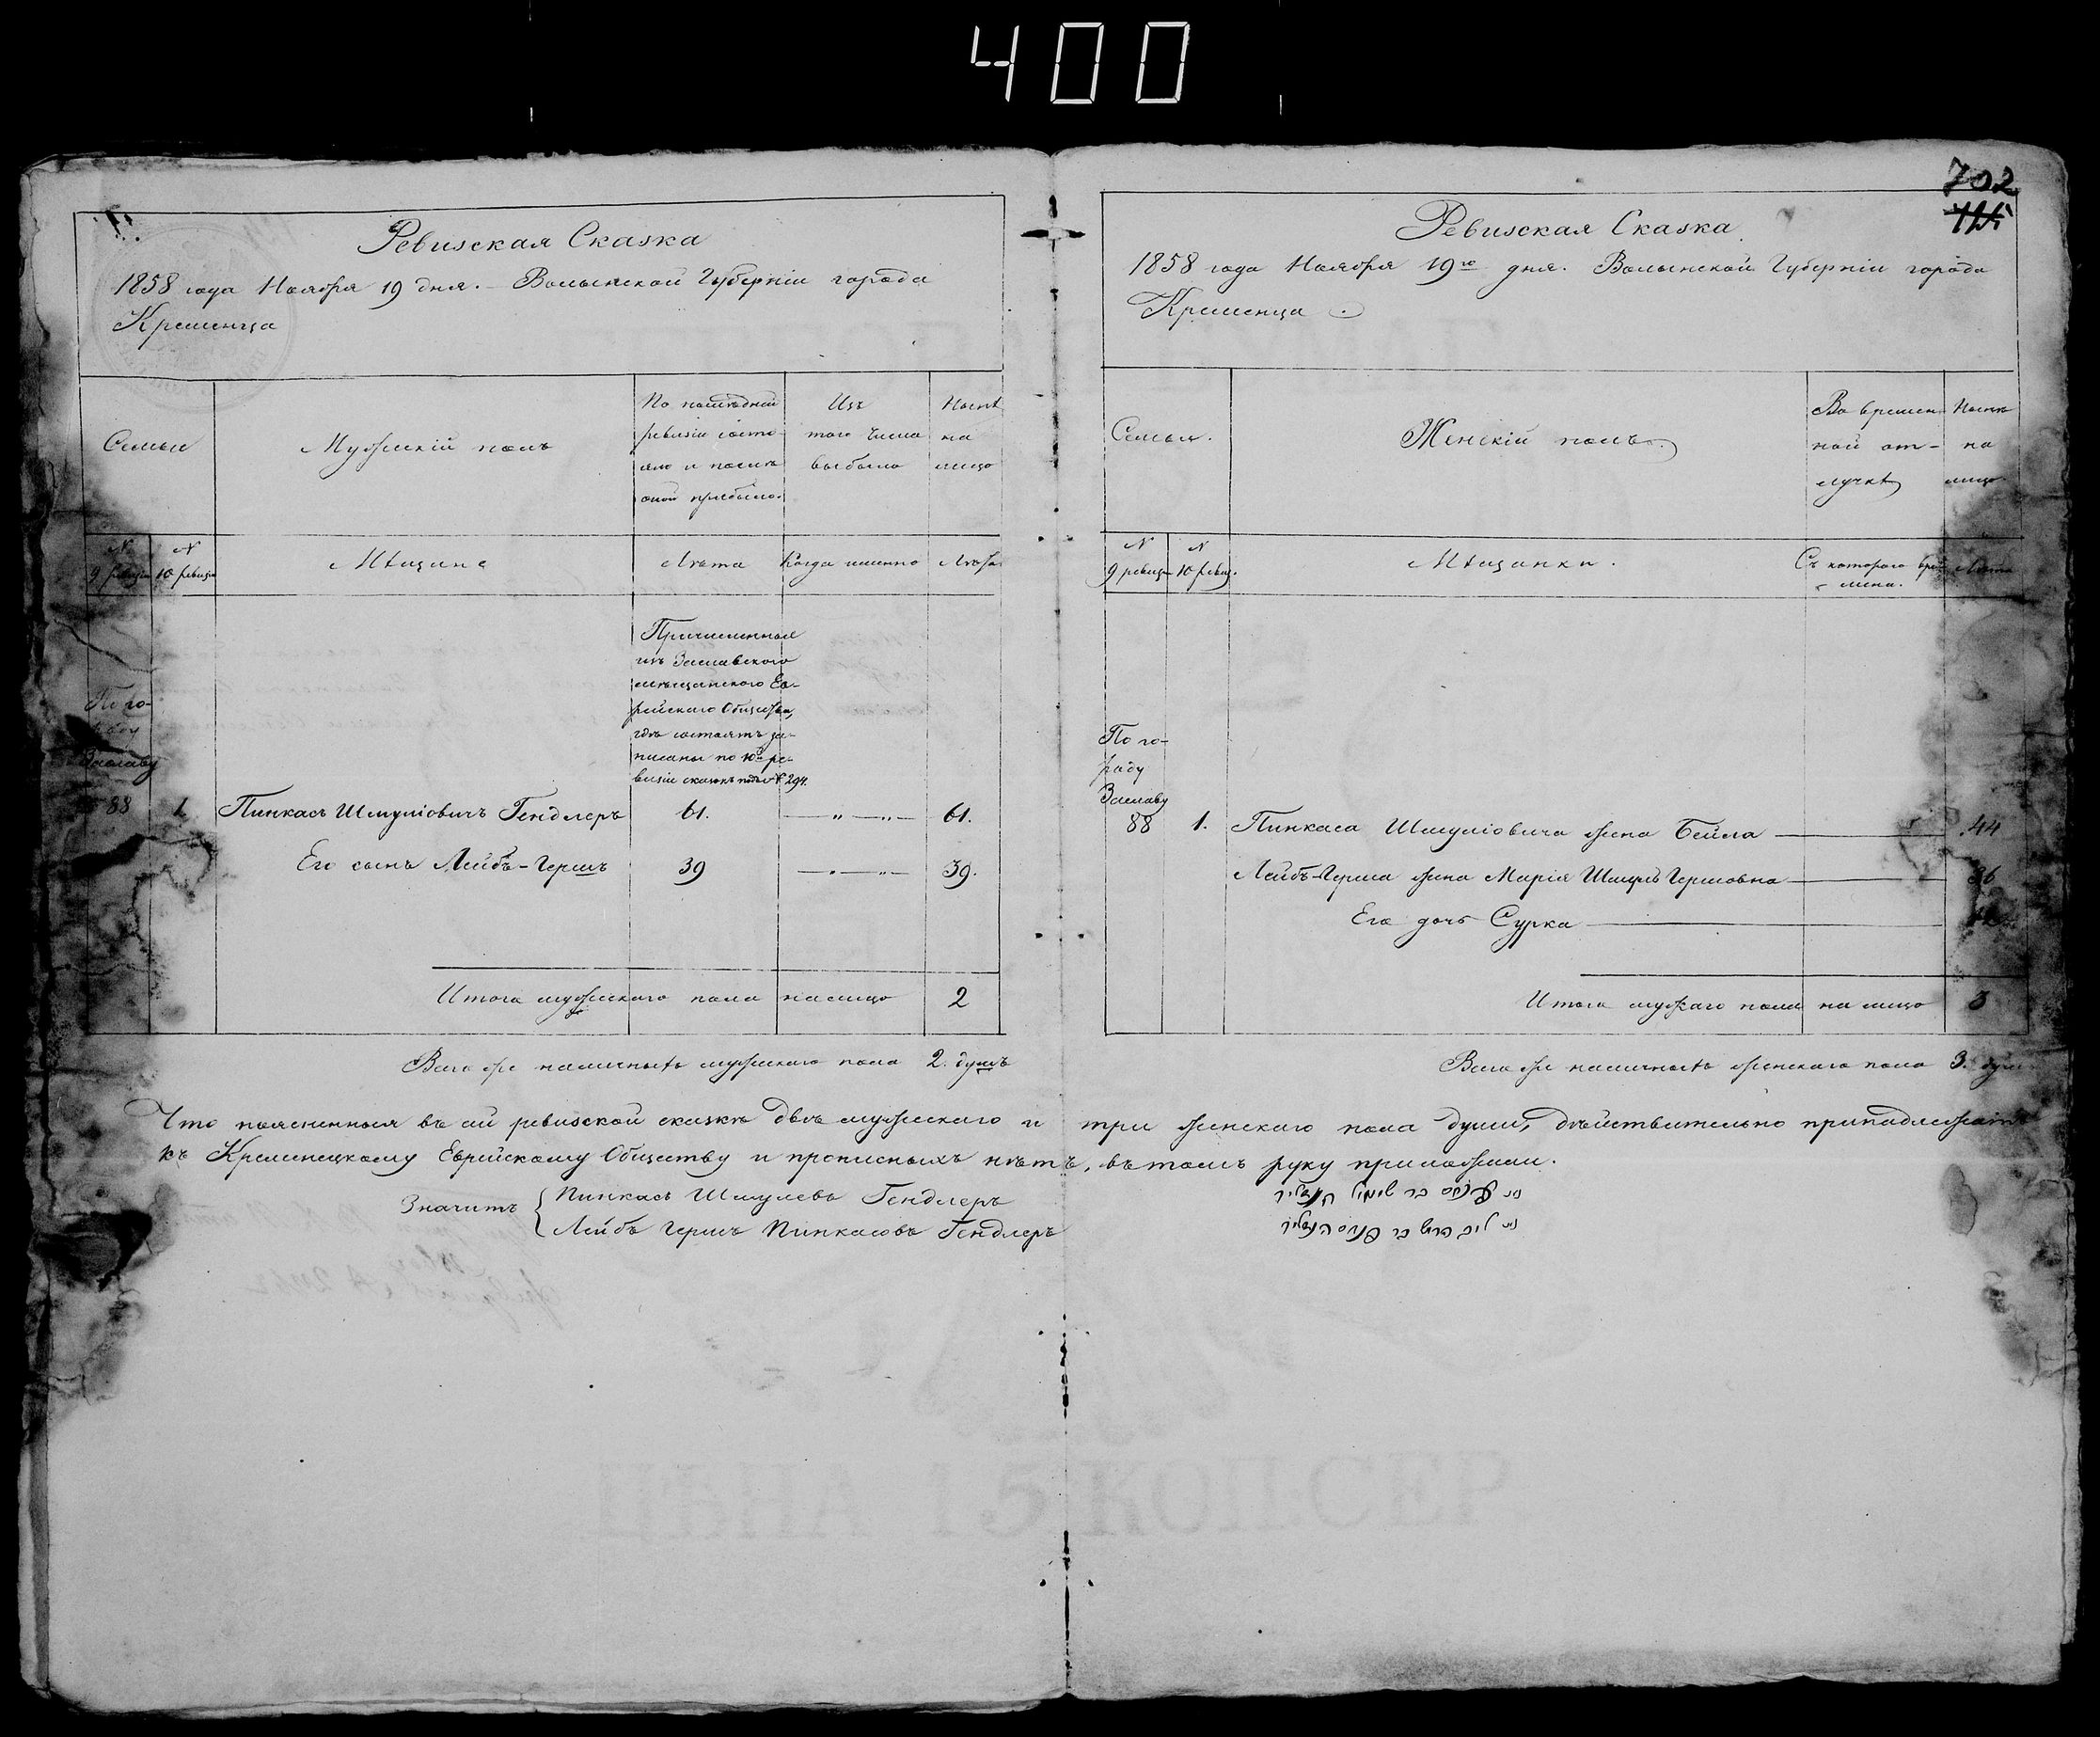 400
702
Ревизская Сказка
1858 года Ноября 19 дня. – Волынской Губерніи города
Кременца
Семьи
Мужескій полъ
По послѣдней
ревизіи состо-
яло и послѣ
оной прибыло.
Изъ
того числа
выбыло
Нынѣ
на
лицо
N
9 ревизіи
N
10 ревизіи
Мѣщане
Лѣта
Когда именно
Лѣта
Причисленные
изъ Заславского
мѣщанского Ев-
рейского Общества,
гдѣ состоятъ за-
писаны по 10й ре-
визіи сказкѣ подъ N 294.
По го-
роду
Заславу
88 1. Пинкасъ Шмуліовичъ Гендлеръ 61. — „ — „ — 61.
Его сынъ Лейбъ-Гершъ 39 — „ — „ — 39.
Итого мужескаго пола на лицо 2
Всего же наличныхъ мужескаго пола 2. душъ
Ревизская Сказка
1858 года Ноября 19го дня. Волынской Губерніи города
Кременца
Семьи.
Женскій полъ.
Во времен-
ной от-
лучкѣ
Нынѣ
на
лицо
N
9 ревиз.
N
10 ревиз.
Мѣщанки.
Съ котораго вре-
мени.
Лѣта
По го-
роду
Заславу
88 1. Пинкаса Шмуліовича жена Бейла — 44
Лейбъ-Герша жена Марія Гершовна — 36
Его дочь Сурка
Итого мужскаго пола на лицо 3
Всего же наличныхъ женскаго пола 3. душ
Что поясненныя въ сей ревизской сказкѣ двѣ мужескаго и три женскаго пола души, дѣйствительно принадлежатъ
къ Кременецкому Еврейскому Обществу и прописныхъ нѣтъ, въ томъ руку приложили.
Значитъ { Пинкасъ Шмулевъ Гендлеръ
Лейбъ Гершъ Пинкасовъ Гендлеръ